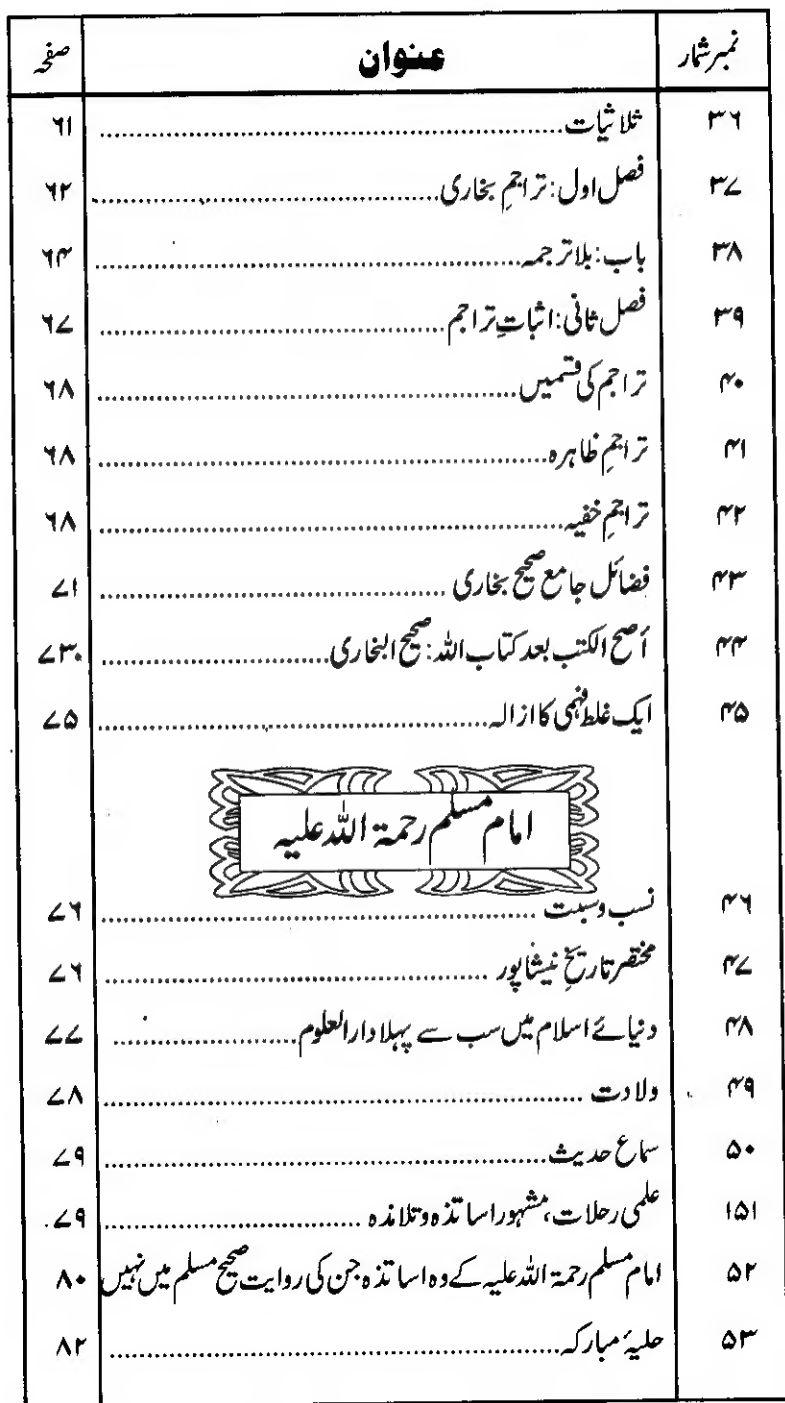 نمبر شمار عنوان صفحہ
۳۶ ثلاثیات ۶۱
۳۷ فصل اول: تراجمِ بخاری ۶۲
۳۸ باب: بلا ترجمہ ۶۴
۳۹ فصل ثانی: اثباتِ تراجم ۶۷
۴۰ تراجم کی قسمیں ۶۸
۴۱ تراجمِ ظاہرہ ۶۸
۴۲ تراجمِ خفیہ ۶۸
۴۳ فضائل جامع صحیح بخاری ۷۱
۴۴ أصح الکتب بعد کتاب اللہ: صحیح البخاری ۷۳
۴۵ ایک غلط فہمی کا ازالہ ۷۵
امام مسلم رحمۃ اللہ علیہ
۴۶ نسب وسبت ۷۶
۴۷ مختصر تاریخِ نیشاپور ۷۶
۴۸ دنیائے اسلام میں سب سے پہلا دارالعلوم ۷۷
۴۹ ولادت ۷۸
۵۰ سماع حدیث ۷۹
۱۵۱ علمی رحلات، مشہور اساتذہ وتلامذہ ۷۹
۵۲ امام مسلم رحمۃ اللہ علیہ کے وہ اساتذہ جن کی روایت صحیح مسلم میں نہیں ۸۰
۵۳ حلیۂ مبارکہ ۸۲